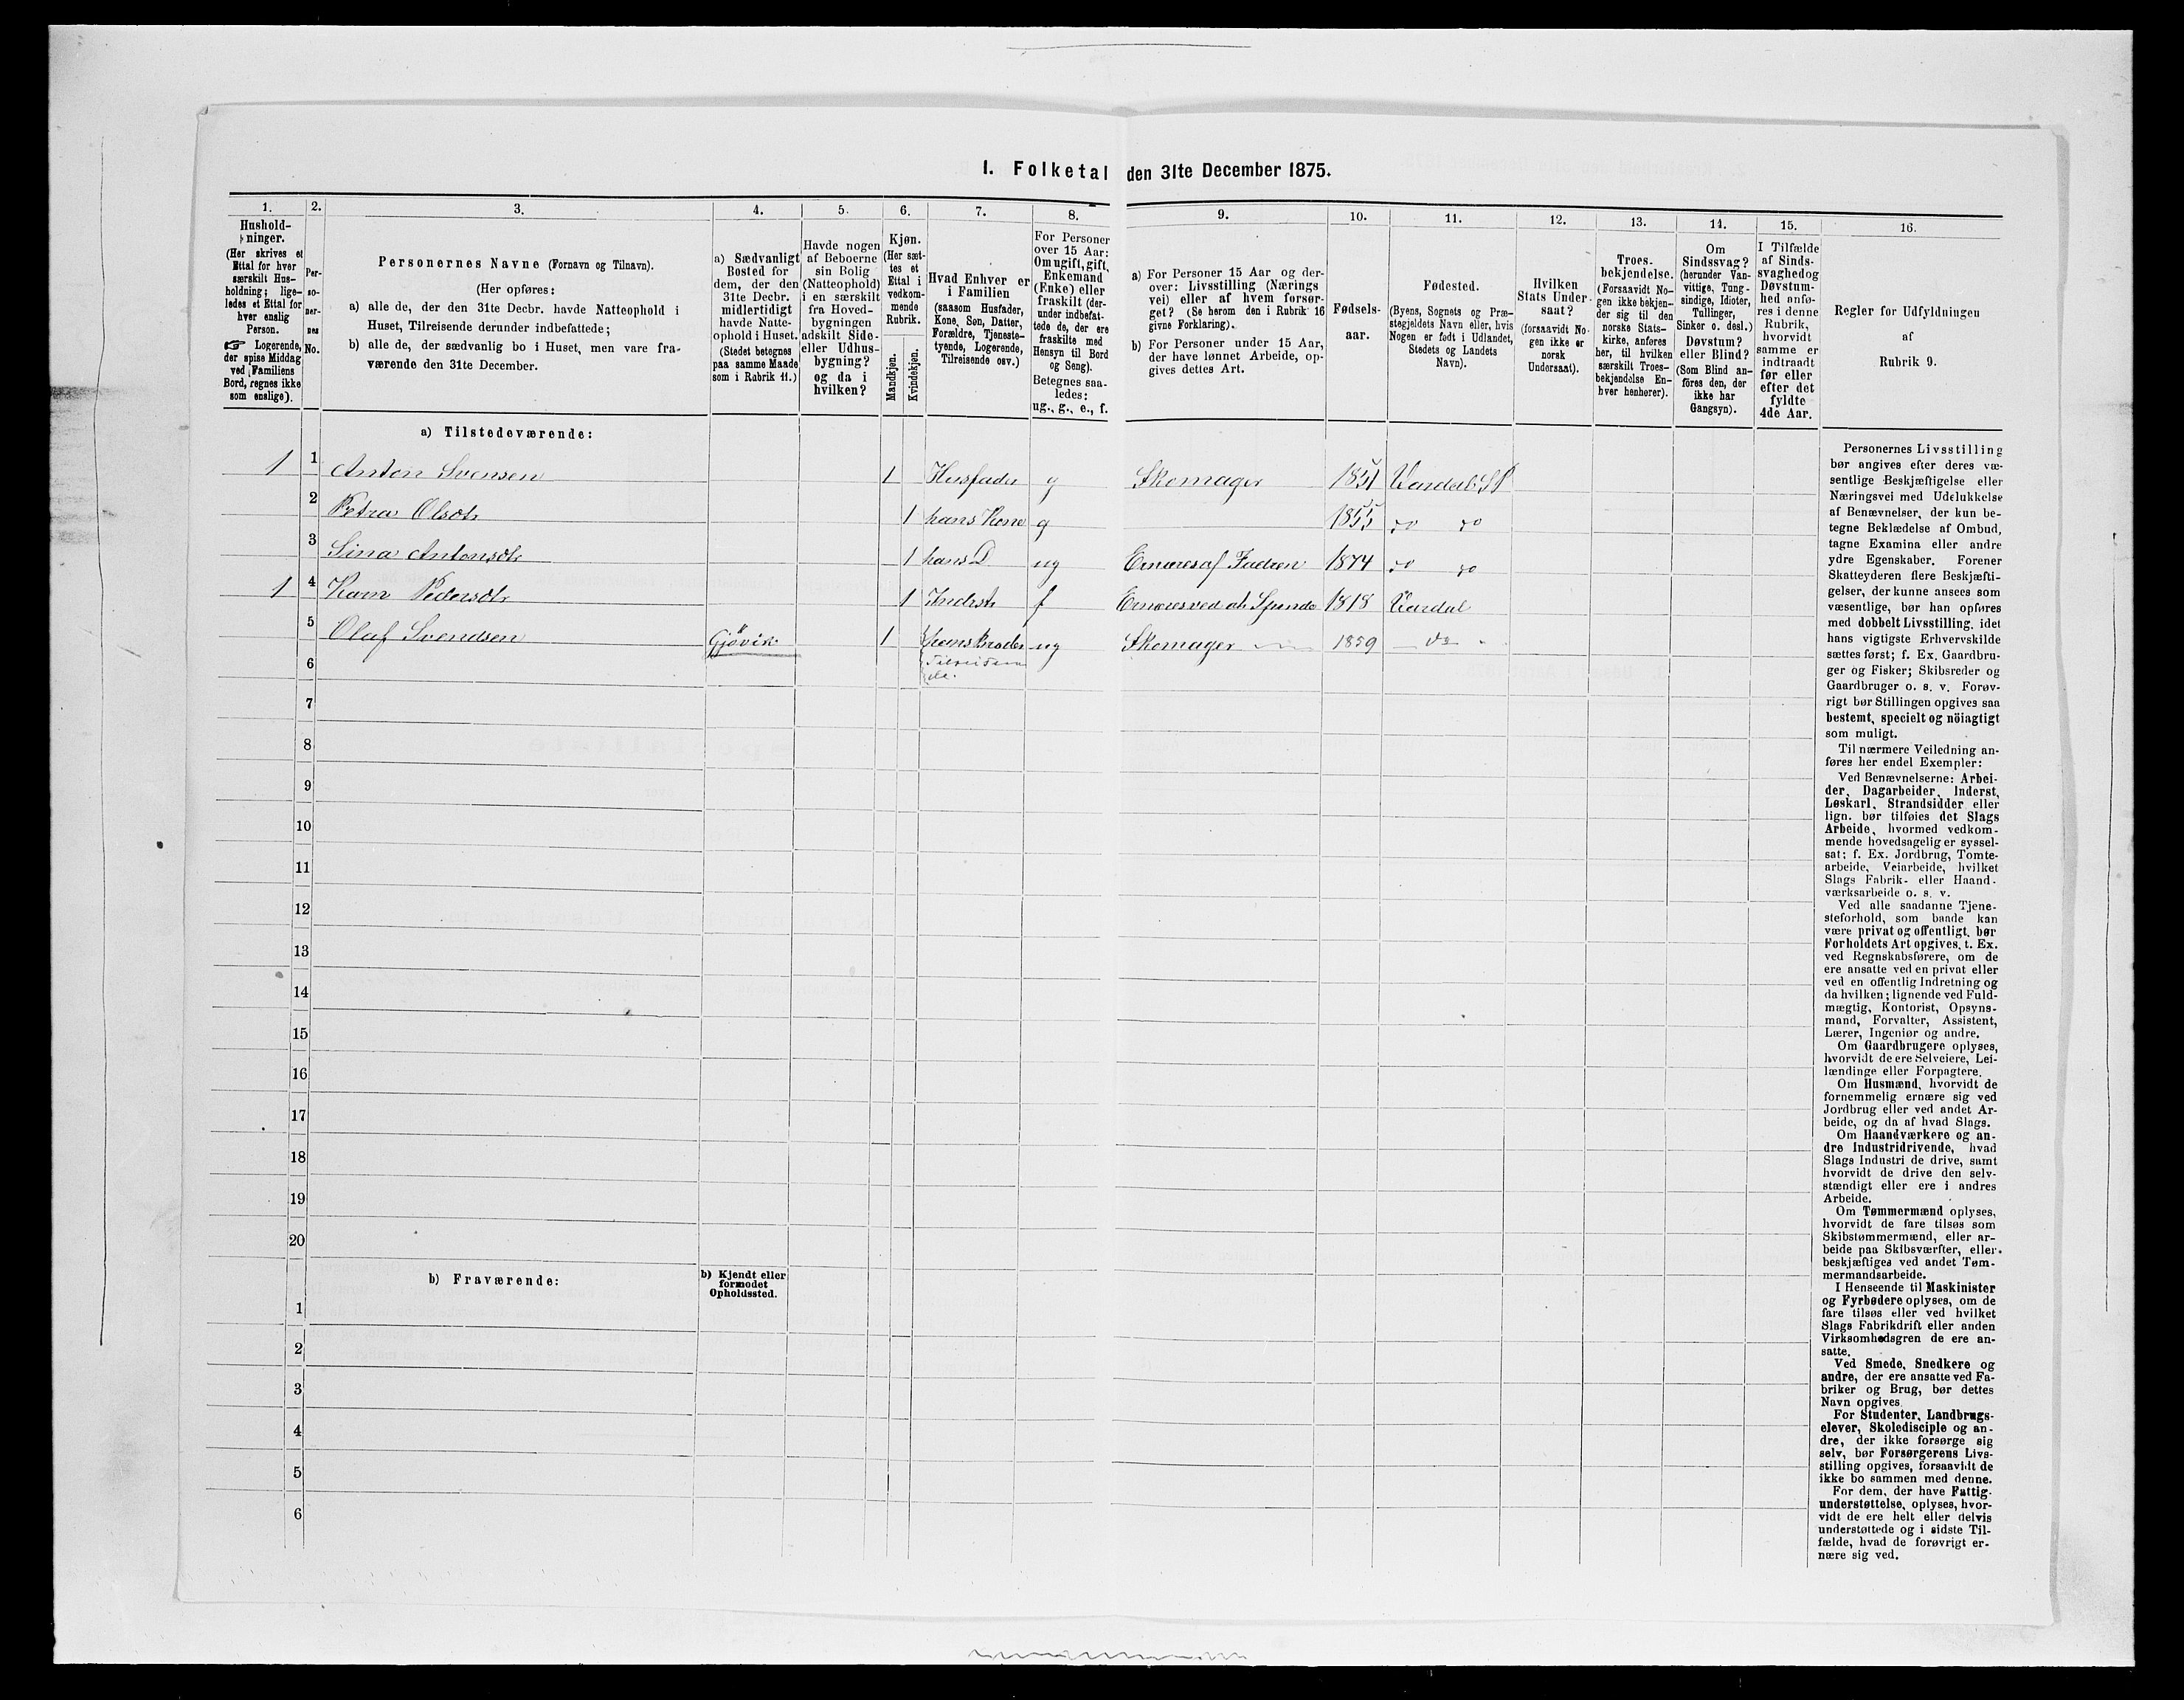 1. Folketal den 31te December 1875.
1.
Hushold-
ninger.
(Her skrives et
Ettal for hver
særskilt Hus-
holdning; lige-
ledes et Ettal for
hver enslig
Person.
☞ Logerende,
der spise Middag
ved Familiens
Bord, regnes ikke
som enslige).
2.
Per-
so-
ner-
nes
No.
3.
Personernes Navne (Fornavn og Tilnavn).
(Her opføres:
a) alle de, der den 31te Decbr. havde Natteophold i
Huset, Tilreisende derunder indbefattede;
b) alle de, der sædvanlig bo i Huset, men vare fra-
værende den 31te December.
4.
a) Sædvanligt
Bosted for
dem, der den
31te Decbr.
midlertidigt
havde Natte-
ophold i Huset.
(Stedet betegnes
paa samme Maade
som i Rubrik 11.)
5.
Havde nogen
af Beboerne
sin Bolig
(Natteophold)
i en særskilt
fra Hoved-
bygningen
adskilt Side-
eller Udhus-
bygning?
og da i
hvilken?
6.
Kjøn.
(Her sæt-
tes et
Ettal i
vedkom-
mende
Rubrik.
Mandkjøn.
Kvindekjøn.
7.
Hvad Enhver er
i Familien
(saasom Husfader,
Kone, Søn, Datter,
Forældre, Tjeneste-
tyende, Logerende,
Tilreisende osv.)
8.
For Personer
over 15 Aar:
Om ugift, gift,
Enkemand
(Enke) eller
fraskilt (der-
under indbefat-
tede de, der ere
fraskilte med
Hensyn til Bord
og Seng).
Betegnes saa-
ledes:
ug., g., e., f.
9.
a) For Personer 15 Aar og der-
over: Livsstilling (Nærings
vei) eller af hvem forsør-
get? (Se herom den i Rubrik 16
givne Forklaring).
b) For Personer under 15 Aar,
der have lønnet Arbeide, op-
gives dettes Art.
10.
Fødsels-
aar.
11.
Fødested.
(Byens, Sognets og Præ-
stegjeldets Navn eller, hvis
Nogen er født i Udlandet,
Stedets og Landets
Navn).
12.
Hvilken
Stats Under-
saat?
(forsaavidt No-
gen ikke er
norsk
Undersaat).
13.
Troes-
bekjendelse.
(Forsaavidt No-
gen ikke bekjen-
der sig til den
norske Stats-
kirke, anføres
her, til hvilken
særskilt Troes-
bekjendelse En-
hver henhører).
14.
Om
Sindssvag?
(herunder Van-
vittige, Tung-
sindige, Idioter,
Tullinger,
Sinker o. desl.)
Døvstum?
eller Blind?
(Som Blind an-
føres den, der
ikke har
Gangsyn).
15.
I Tilfælde
af Sinds-
svaghed og
Døvstum-
hed anfø-
res i denne
Rubrik,
hvorvidt
samme er
indtraadt
før eller
efter det
fyldte
4de Aar.
16.
Regler for Udfyldningen
af
Rubrik 9.
a) Tilstedeværende:
1 1 Anton Svensen 1 Husfader g Skomager 1851 Vardal
2 Petra Olsdtr 1 hans Kone g 1855 do do
3 Sina Antonsdtr 1 hans D ug Ernæres af Fadren 1874 do do
1 4 Karn Pedersdtr 1 Inderst f Ernæres ved at Spinde 1818 Vardal
5 Olaf Svendsen Gjøvik 1 hans Broder ug Skomager 1859 do
6
7
8
9
10
11
12
13
14
15
16
17
18
19
20
b) Fraværende:
b) Kjendt eller
formodet
Opholdssted.
1
2
3
4
5
6
Personernes Livsstilling
bør angives efter deres væ-
sentlige Beskjæftigelse eller
Næringsvei med Udelukkelse
af Benævnelser, der kun be-
tegne Beklædelse af Ombud,
tagne Examina eller andre
ydre Egenskaber. Forener
Skatteyderen flere Beskjæfti-
gelser, der kunne ansees som
væsentlige, bør han opføres
med dobbelt Livsstilling, idet
hans vigtigste Erhvervskilde
sættes først; f. Ex. Gaardbru-
ger og Fisker; Skibsreder og
Gaardbruger o. s. v. Forøv-
rigt bør Stillingen opgives saa
bestemt, specielt og nöiagtigt
som muligt.
Til nærmere Veiledning an-
føres her endel Exempler:
Ved Benævnelserne: Arbei-
der, Dagarbeider, Inderst,
Løskarl, Strandsidder eller
lign. bør tilføies det Slags
Arbeide, hvormed vedkom-
mende hovedsagelig er syssel-
sat; f. Ex. Jordbrug, Tomte-
arbeide, Veiarbeide, hvilket
Slags Fabrik- eller Haand-
værksarbeide o. s. v.
Ved alle saadanne Tjene-
steforhold, som baade kan
være privat og offentligt, bør
Forholdets Art opgives, t. Ex.
ved Regnskabsførere, om de
ere ansatte ved en privat eller
ved en offentlig Indretning og
da hvilken; lignende ved Fuld-
mægtig, Kontorist, Opsyns-
mand, Forvalter, Assistent,
Lærer, Ingeniør og andre.
Om Gaardbrugere oplyses,
hvorvidt de ere Selveiere, Lei-
lændinge eller Forpagtere.
Om Husmænd, hvorvidt de
fornemmelig ernære sig ved
Jordbrug eller ved andet Ar-
beide, og da af hvad Slags.
Om Haandværkere og an-
dre Industridrivende, hvad
Slags Industri de drive, samt
hvorvidt de drive den selv-
stændigt eller ere i andres
Arbeide.
Om Tømmermænd oplyses,
hvorvidt de fare tilsøs som
Skibstømmermænd, eller ar-
beide paa Skibsværfter, eller
beskjæftiges ved andet Tøm-
mermandsarbeide.
I Henseende til Maskinister
og Fyrbødere oplyses, om de
fare tilsøs eller ved hvilket
Slags Fabrikdrift eller anden
Virksomhedsgren de ere an-
satte.
Ved Smede, Snedkere og
andre, der ere ansatte ved Fa-
briker og Brug, bør dettes
Navn opgives.
For Studenter, Landbrugs-
elever, Skoledisciple og an-
dre, der ikke forsørge sig
selv, bør Forsørgerens Livs-
stilling opgives, forsaavidt de
ikke bo sammen med denne.
For dem, der have Fattig-
understøttelse, oplyses, hvor-
vidt de ere helt eller delvis
understøttede og i sidste Til-
fælde, hvad de forøvrigt er-
nære sig ved.